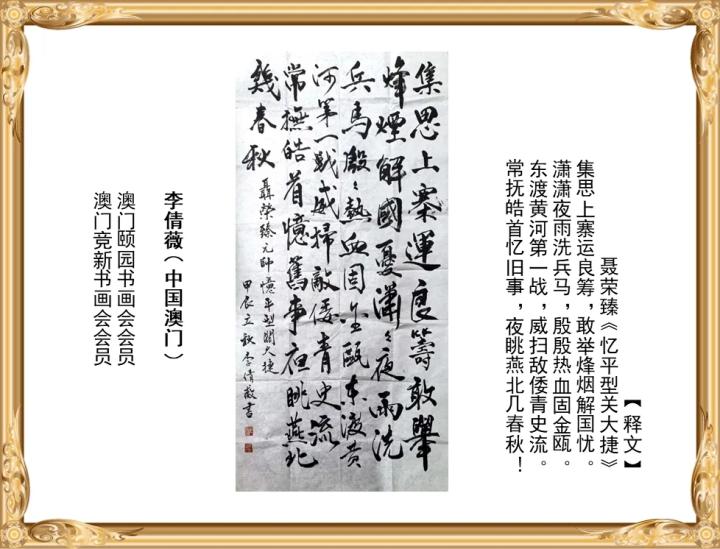 【释文】
聂荣臻《忆平型关大捷》
集思上寨运良筹，敢举烽烟解国忧。
潇潇夜雨洗兵马，殷殷热血固金瓯。
东渡黄河第一战，威扫敌倭青史流。
常抚皓首忆旧事，夜眺燕北几春秋！
集思上寨運良籌敢舉
烽煙解國憂瀟〻夜雨洗
兵馬殷〻熱血固金甌東渡黄
河第一戰威掃敵倭青史流
常撫皓首憶舊事夜眺燕北
幾春秋
聶榮臻元帥憶平型關大捷
甲辰立秋李倩薇書
李倩薇（中国澳门）
澳门颐园书画会会员
澳门竞新书画会会员